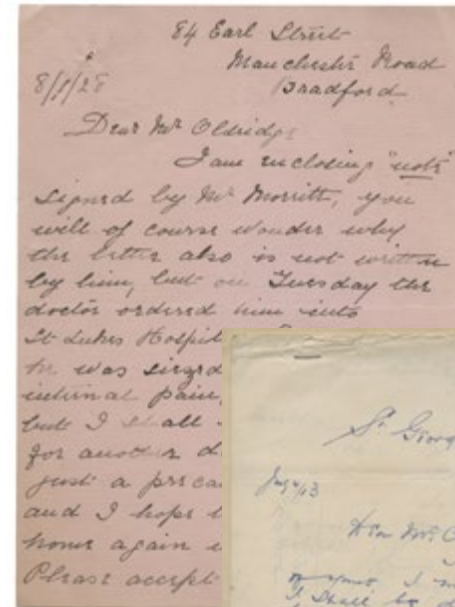 84 Earl Street
Manchester Road
Bradford.
8/1/28
Dear Mr Oldridge
I am enclosing "note"
signed by Mr Morritt, you
will of course wonder why
the letter also is not written
by him, but on Tuesday the
doctor ordered him into
St Lukes Hospit
he was seized
internal pain,
but I shall
for another d
just a preca
and I hope
home again
Please accept
St Georg
Dear Mr O
I
I shall be